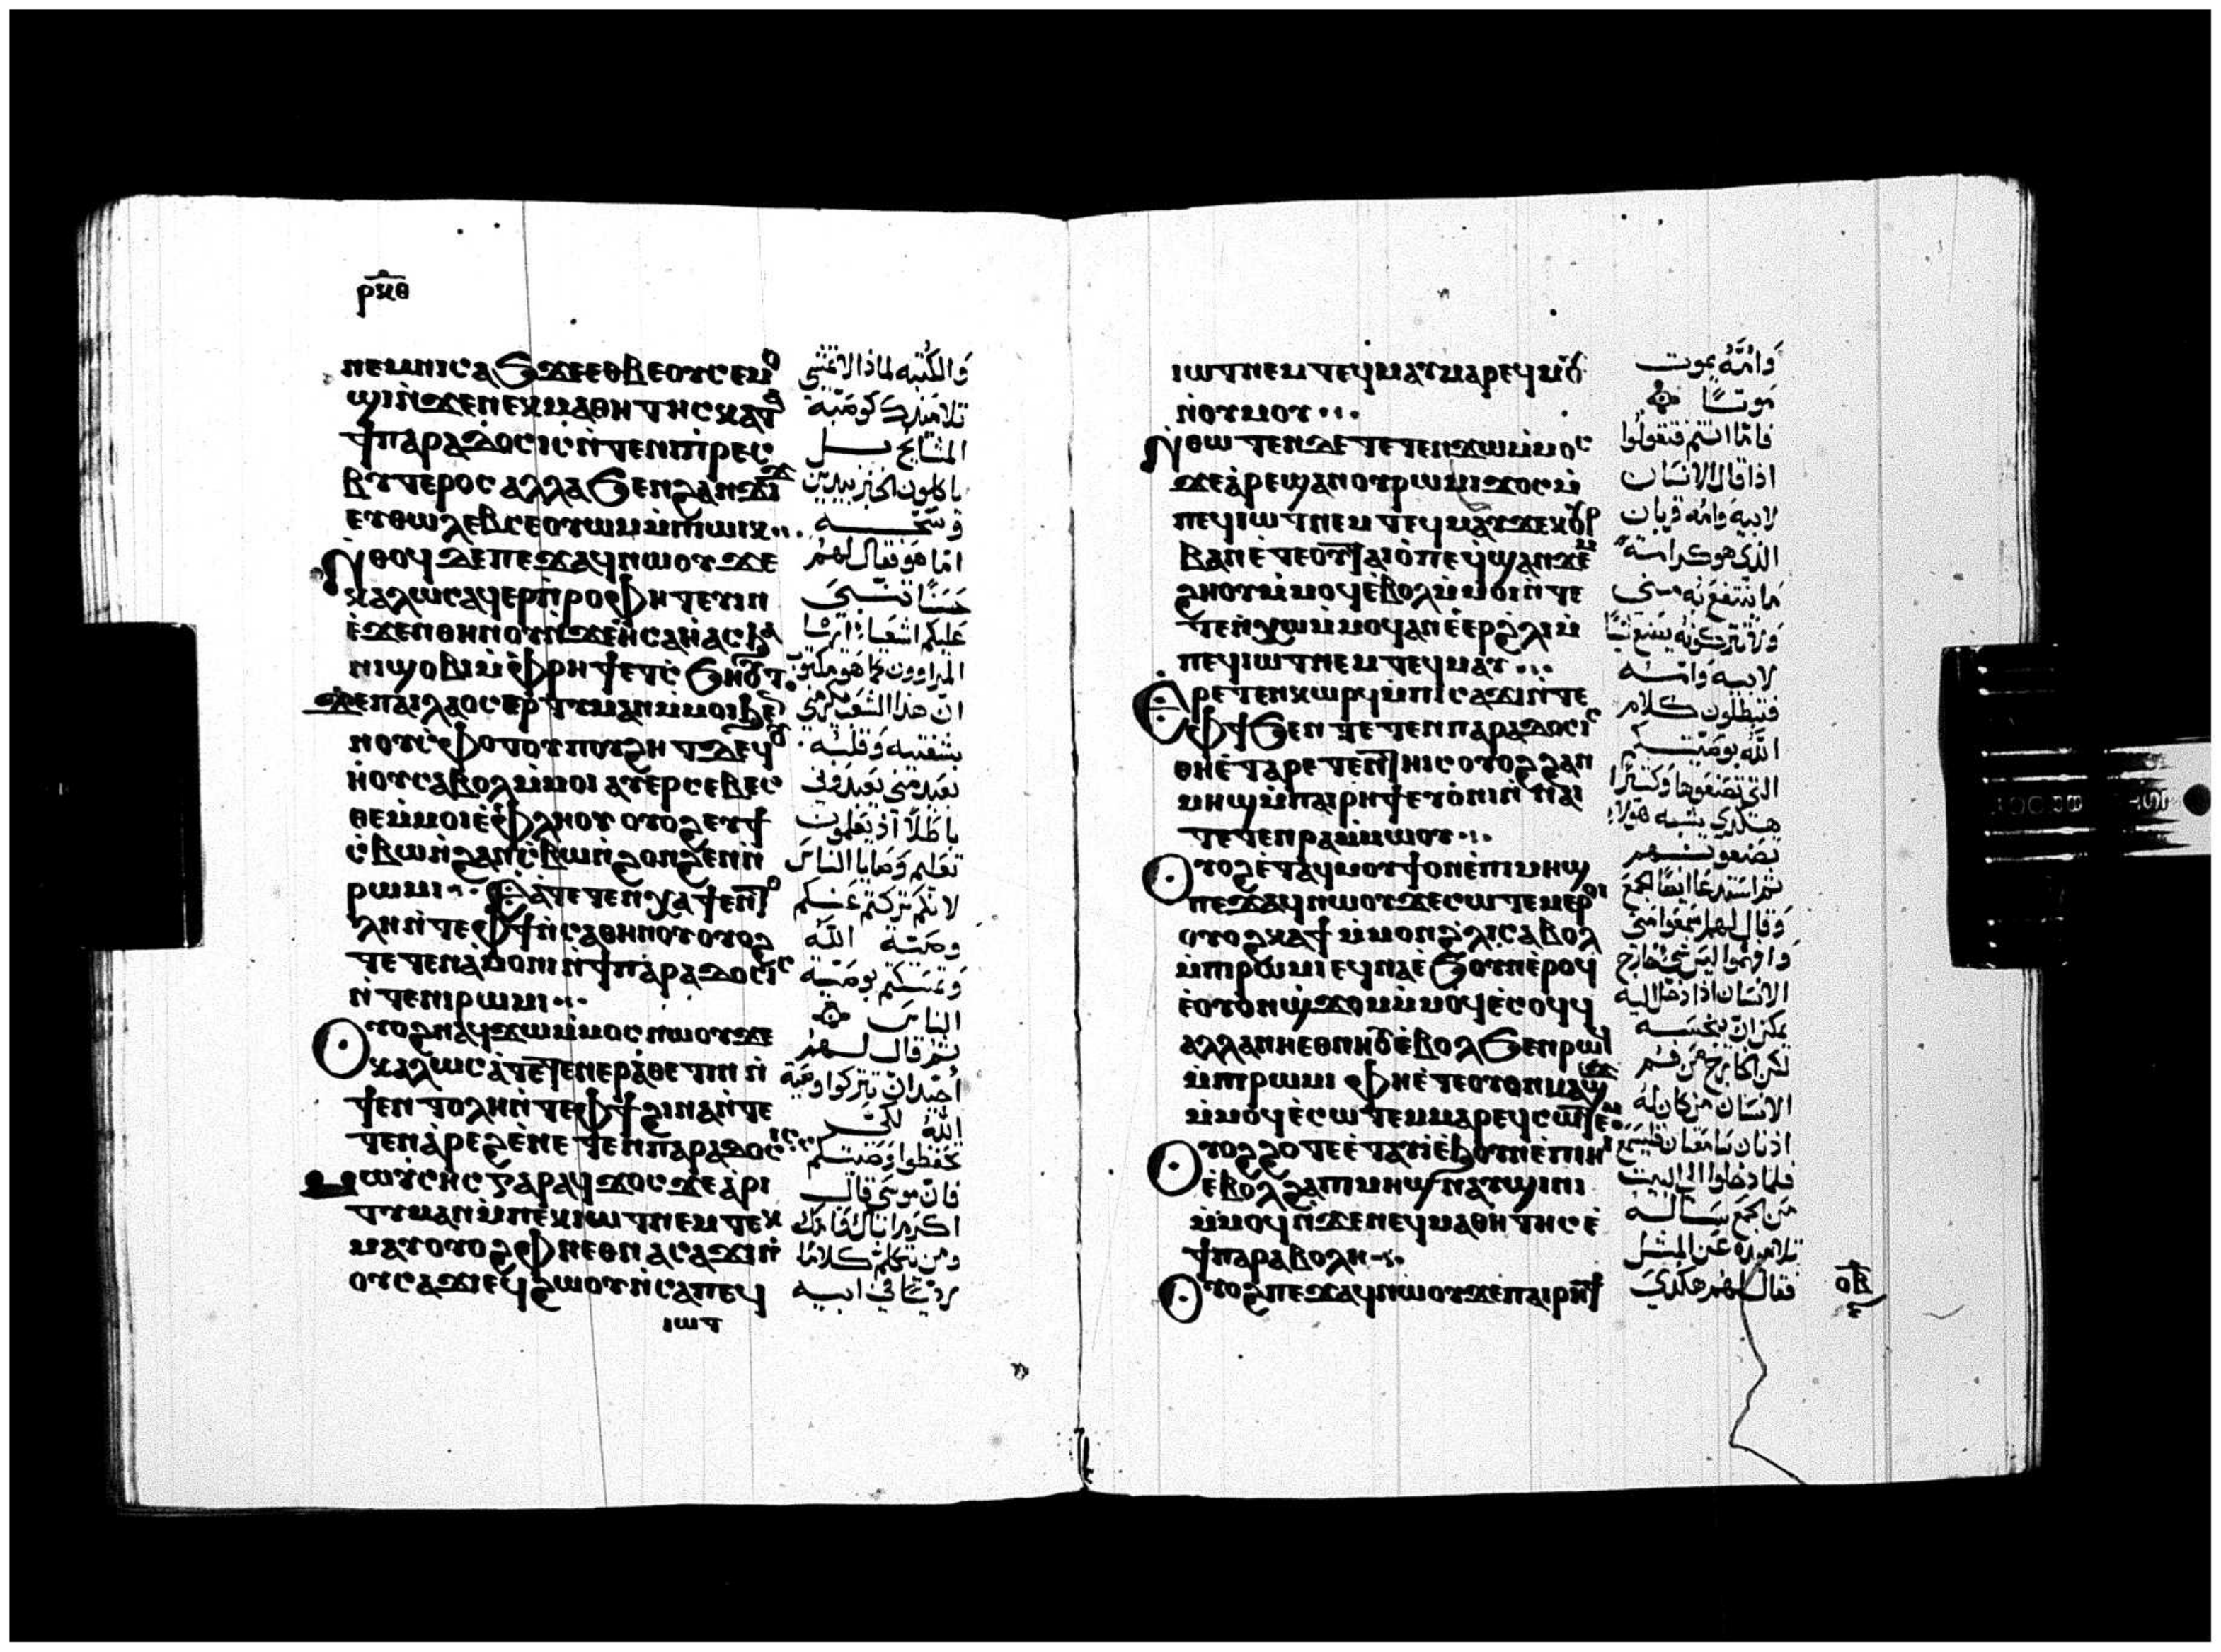 ⲣⲝⲑ
ⲛⲉⲙⲛⲓⲥⲁϧ ϫⲉⲉⲑⲃⲉⲟⲩⲥⲉⲙⲟ
ϣⲓⲛ̀ϫⲉⲛⲉⲕⲙⲁⲑⲏⲧⲏⲥⲕⲁⲧⲁ
ϯⲡⲁⲣⲁⲇⲟⲥⲓⲥⲛ̀ⲧⲉⲛⲓⲡ̀ⲣⲉⲥ
ⲃⲩⲧⲉⲣⲟⲥ ⲁⲗⲗⲁ ϧⲉⲛϩⲁⲛϫⲓϫ
ⲉⲩⲑⲱⲗⲉⲃⲥⲉⲟⲩⲱⲙⲙ̀ⲡⲓⲱⲓⲕ
ⲛ̀ⲑⲟϥ ⲇⲉⲡⲉϫⲁϥⲛⲱⲟⲩ ϫⲉ
ⲕⲁⲗⲱⲥⲁϥⲉⲣⲡ̀ⲣⲟⲫⲏⲧⲉⲩⲓⲛ
ⲉ̀ϫⲉⲛⲑⲏⲛⲟⲩⲛ̀ϫⲉⲏ̀ⲥⲁⲏ̀ⲁⲥϧⲁ
ⲛⲓϣⲟⲃⲓⲙ̀ⲫ̀ⲣⲏϯⲉⲧⲥ̀ϧⲏⲟⲩⲧ
ϫⲉⲡⲁⲓⲗⲁⲟⲥⲉⲣⲧⲓⲙⲁⲛⲙ̀ⲙⲟⲓϧⲉ
ⲛⲟⲩⲥ̀ⲫⲟⲧⲟⲩⲡⲟⲩϩⲏⲧ ⲇⲉϥⲟ
ⲏ̀ⲟⲩⲥⲁⲃⲟⲗⲙ̀ⲙⲟⲓ ⲁⲩⲉⲣⲥⲉⲃⲉⲥ
ⲑⲉⲙ̀ⲙⲟⲓⲉ̀ⲫ̀ⲗⲏⲟⲩ ⲟⲩⲟϩⲉⲩϯ
ⲥ̀ⲃⲱⲛ̀ϩⲁⲛⲥ̀ⲃⲱⲛ̀ϩⲟⲛϩⲉⲛⲛ̀
ⲣⲱⲙⲓ ⲉ̀ⲁ̀ⲧⲉⲧⲉⲛⲭⲁϯⲉⲛⲧⲟ
ⲗⲏⲛ̀ⲧⲉⲫϯⲛ̀ⲥⲁⲑⲏⲛⲟⲩⲟⲩⲟϩ
ⲧⲉⲧⲉⲛⲁ̀ⲙⲟⲛⲓⲛϯⲡⲁⲣⲁⲇⲟⲥⲓⲥ
ⲛ̀ⲧⲉⲛⲓⲣⲱⲙⲓ
ⲟⲩⲟϩⲛⲁϥϫⲱⲙ̀ⲙⲟⲥ ⲛⲱⲟⲩ ϫⲉ
ⲕⲁⲗⲱⲥⲁ̀ⲧⲉⲧⲉⲛⲉⲣⲁ̀ⲑⲉⲧⲓⲛ ⲛ̀
ϯⲉⲛⲧⲟⲗⲏⲛ̀ⲧⲉⲫϯ ϩⲓⲛⲁⲛ̀ⲧⲉ
ⲧⲉⲛⲁ̀ⲣⲉϩⲉ̀ⲛⲉⲧⲉⲛⲡⲁⲣⲁⲇⲟⲥⲓⲥ
ⲙⲱⲩ̀ⲥⲏⲥ ⲅⲁⲣⲁϥϫⲟⲥ ϫⲉⲁ̀ⲣⲓ
ⲧⲓⲙⲁⲛⲙ̀ⲡⲉⲕⲓⲱⲧⲛⲉⲙⲧⲉⲕ
ⲙⲁⲩⲟⲩⲟϩ ⲫⲏⲉⲑⲛⲁⲥⲁϫⲓⲛ̀
ⲟⲩⲥⲁϫⲓⲉϥϩⲱⲟⲩⲛ̀ⲥⲁⲡⲉϥ
ⲓⲱⲧ
والكتبه لماذا لا تمشي
تلاميذك كوصية
المشايخ بل
ياكلون الخبز بيدين
وسخه
اما هو فقال لهم
حسنا تنبى
عليكم اشعيا ايها
المراوون كما هو مكتوب
ان هذا الشعب يكرمني
بشفتيه وقلبه
بعيد مني يعبدوني
باطلا اذ يعلمون
تعليم وصايا الناس
لانكم تركتم عنكم
وصية الله
وتمسكتم بوصية
الناس
ثم قال لهم
أجيد ان تتركوا وصية
الله لكي
تحفظوا وصيتكم
فان موسى قال
اكرم اباك وامك
ومن تكلم كلاما
رديا في ابيه
ⲓⲱⲧⲛⲉⲙ ⲧⲉϥⲙⲁⲩⲙⲁⲣⲉϥⲙⲟⲩ
ⲛ̀ⲟⲩⲙⲟⲩ
ⲛ̀ⲑⲱⲧⲉⲛⲇⲉ ⲧⲉⲧⲉⲛϫⲱⲙ̀ⲙⲟⲥ
ϫⲉⲁ̀ⲣⲉϣⲁⲛⲟⲩⲣⲱⲙⲓϫⲟⲥⲙ̀
ⲡⲉϥⲓⲱⲧⲛⲉⲙ ⲧⲉϥⲙⲁⲩ ϫⲉⲕⲟⲣ
ⲃⲁⲛⲉ̀ⲧⲉⲟⲩⲧⲁⲓⲟ̀ⲡⲉϥϣⲁⲛϫⲉⲙ
ϩⲏⲟⲩⲙ̀ⲙⲟϥⲉ̀ⲃⲟⲗⲙ̀ⲙⲟⲓⲛ̀ⲧⲉ
ⲧⲉⲛ̀ⲭⲱⲙ̀ⲙⲟϥⲁⲛⲉ̀ⲉⲣϩ̀ⲗⲓⲙ
ⲡⲉϥⲓⲱⲧⲛⲉⲙ ⲧⲉϥⲙⲁⲩ
ⲉ̀ⲣⲉⲧⲉⲛⲕⲱⲣϥⲙ̀ⲡⲓⲥⲁϫⲓⲛ̀ⲧⲉ
ⲫϯϧⲉⲛ ⲧⲉⲧⲉⲛⲡⲁⲣⲁⲇⲟⲥⲓⲥ
ⲑⲏⲉ̀ⲧⲁⲣⲉⲧⲉⲛⲧⲏⲓⲥⲟⲩⲟϩϩⲁⲛ
ⲙⲏϣⲙ̀ⲡⲁⲓⲣⲏϯⲉⲩⲟ̀ⲛⲓⲛ̀ⲛⲁⲓ
ⲧⲉⲧⲉⲛⲣⲁⲙ̀ⲙⲱⲟⲩ
ⲟⲩⲟϩⲉ̀ⲧⲁϥⲙⲟⲩϯⲟⲛⲉ̀ⲡⲓⲙⲏϣ
ⲡⲉϫⲁϥⲛⲱⲟⲩ ϫⲉⲥⲱⲧⲉⲙⲉⲣⲟⲓ
ⲟⲩⲟϩⲕⲁϯ ⲙ̀ⲙⲟⲛϩ̀ⲗⲓⲥⲁⲃⲟⲗ
ⲙ̀ⲡⲓⲣⲱⲙⲓⲉϥⲛⲁⲉ̀ϧⲟⲩⲛⲉ̀ⲣⲟϥ
ⲉ̀ⲟⲩⲟⲛϣ̀ϫⲟⲙⲙ̀ⲙⲟϥⲉ̀ⲥⲟϥϥ
ⲁⲗⲗⲁⲛⲏⲉⲑⲛⲏⲟⲩⲉ̀ⲃⲟⲗϧⲉⲛⲣⲱϥ
ⲙ̀ⲡⲓⲣⲱⲙⲓ ⲫⲏⲉ̀ⲧⲉⲟⲩⲟⲛⲙⲁϣϫ
ⲙ̀ⲙⲟϥⲉ̀ⲥⲱⲧⲉⲙⲙⲁⲣⲉϥⲥⲱⲧⲉⲙ
ⲟⲩⲟϩϩⲟⲧⲉⲉ̀ⲧⲁϥⲓⲉ̀ϧⲟⲩⲛⲉ̀ⲡⲓⲏⲓ
ⲉ̀ⲃⲟⲗϩⲁⲡⲓⲙⲏϣⲛⲁⲩϣⲓⲛⲓ
ⲙ̀ⲙⲟϥⲛ̀ϫⲉⲛⲉϥⲙⲁⲑⲏⲧⲏⲥⲉ̀
ϯⲡⲁⲣⲁⲃⲟⲗⲏ
ⲟⲩⲟϩⲡⲉϫⲁϥⲛⲱⲟⲩϫⲉⲡⲁⲓⲣⲏϯ
وامه يموت
موتا
فاما انتم فتقولوا
اذا قال الانسان
لابيه وامه قربان
الذي هو كرامة
ما ينتفع به مني
ولا تتركونه يصنع شيا
لابيه وامه
فتبطلون كلام
الله بوصيتكم
التي تصنعوها وكثيرا
هكذي يشبه هولا
تصنعونهم
ثم استدعا ايضا الجمع
وقال لهم اسمعوا مني
وافهموا ليس شي خارج
الانسان اذا دخل اليه
يمكن ان ينجسه
لكن الخارج من فم
الانسان من كان له
اذنان سامعتان فليسمع
فلما دخلوا الى البيت
من الجمع سأله
تلاميذه عن المثل
فقال لهم هكذي
ⲟⲃ